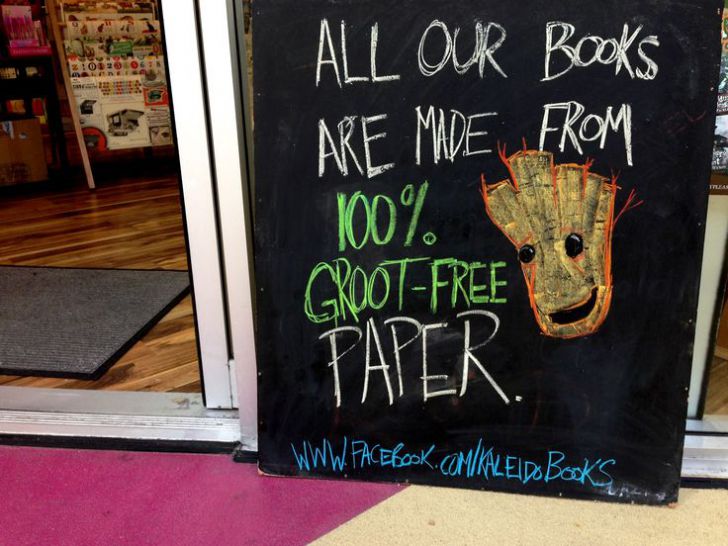 ALL OUR BOOKS
ARE MADE FROM
100%
GROOT-FREE
PAPER.
WWW.FACEBOOK.COM/KALEIDOBOOKS